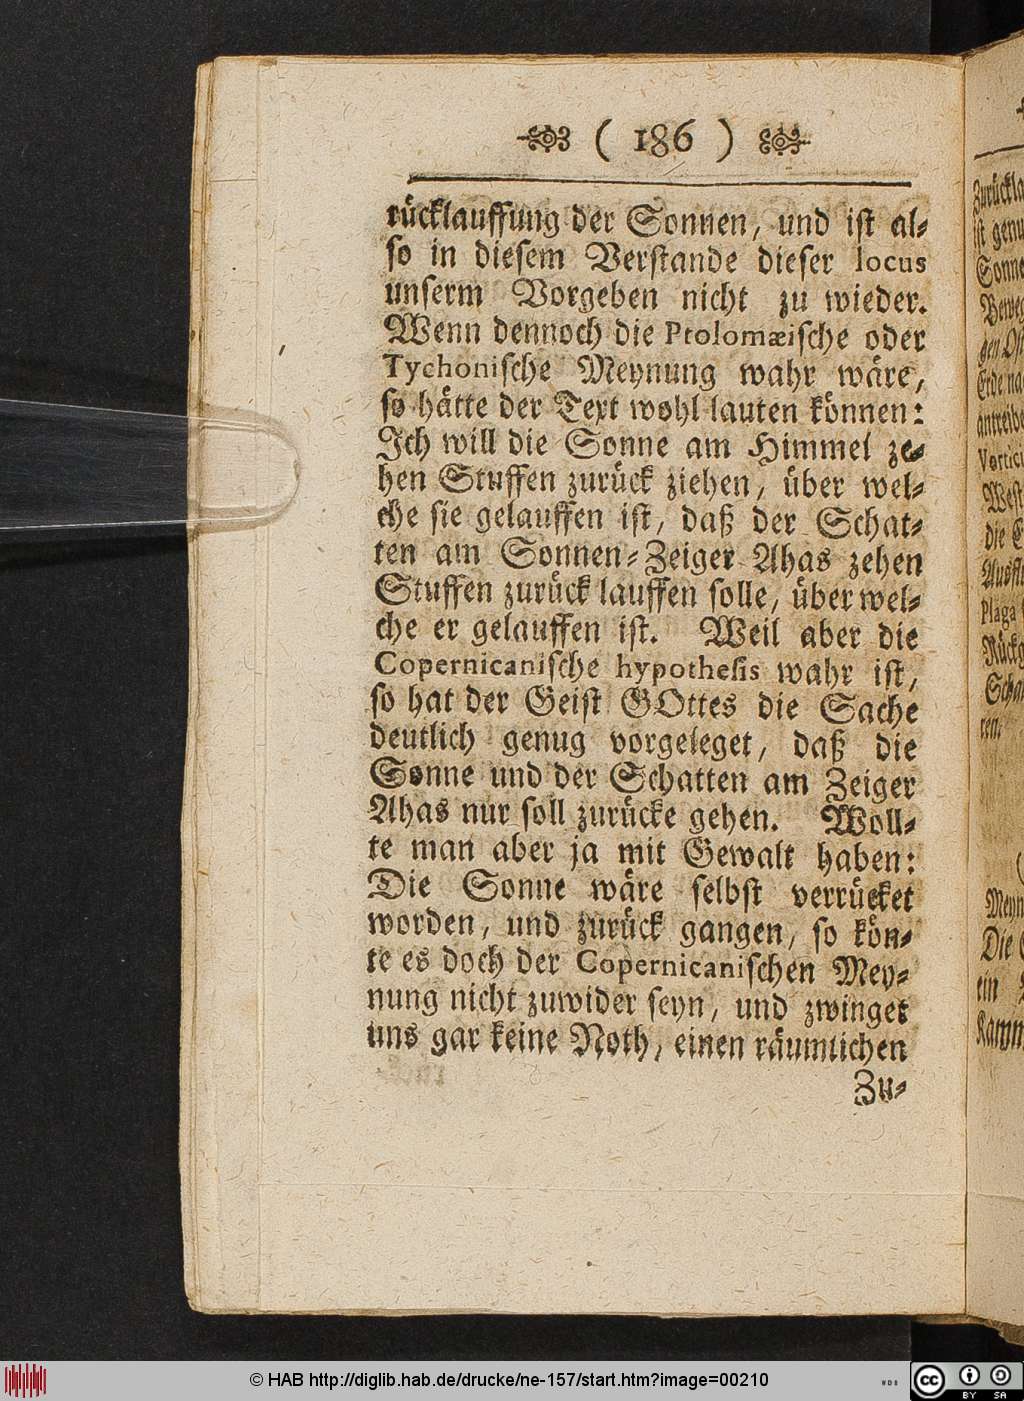 ( 186 )
rücklauffung der Sonnen, und ist al-
so in diesem Verstande dieser locus
unserm Vorgeben nicht zu wieder.
Wenn dennoch die Ptolomæische oder
Tychonische Meynung wahr wäre,
so hätte der Text wohl lauten können:
Ich will die Sonne am Himmel ze-
hen Stuffen zurück ziehen, über wel-
che sie gelauffen ist, daß der Schat-
ten am Sonnen-Zeiger Ahas zehen
Stuffen zurück lauffen solle, über wel-
che er gelauffen ist. Weil aber die
Copernicanische hypothesis wahr ist,
so hat der Geist GOttes die Sache
deutlich genug vorgeleget, daß die
Sonne und der Schatten am Zeiger
Ahas nur soll zurücke gehen. Woll-
te man aber ja mit Gewalt haben:
Die Sonne wäre selbst verrücket
worden, und zurück gangen, so kön-
te es doch der Copernicanischen Mey-
nung nicht zuwider seyn, und zwinget
uns gar keine Noth, einen räumlichen
Zu-
ist genu
Sonne
Erde na
antreibe
Vortici
West
die E
Plaga
Rückg
Scha
ren.
Meyn
Die
ein
Kamm
© HAB http://diglib.hab.de/drucke/ne-157/start.htm?image=00210
WDB
cc BY SA